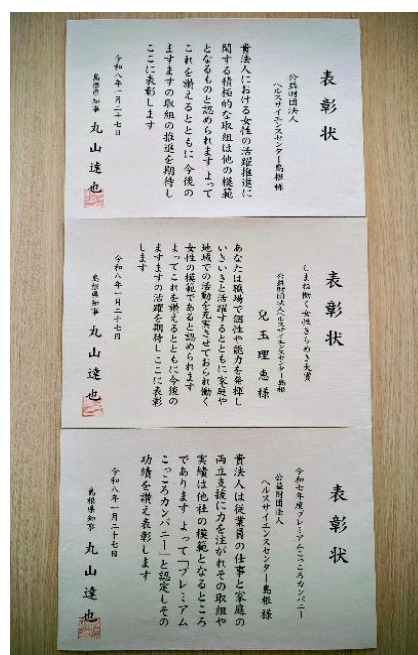 表彰状
公益財団法人
ヘルスサイエンスセンター島根様
貴法人における女性の活躍推進に
関する積極的な取組は他の模範
となるものと認められます よって
これを讃えるとともに 今後の
ますますの取組の推進を期待し
ここに表彰します
令和八年一月二十七日
島根県知事 丸山達也
表彰状
しまね働く女性きらめき大賞
公益財団法人ヘルスサイエンスセンター島根
兒玉理恵様
あなたは職場で個性や能力を発揮し
いきいきと活躍するとともに家庭や
地域での活動を充実させておられ働く
女性の模範であると認められます
よってこれを讃えるとともに今後の
ますますの活躍を期待しここに表彰
します
令和八年一月二十七日
島根県知事 丸山達也
表彰状
令和七年度プレミアムこっころカンパニー
公益財団法人
ヘルスサイエンスセンター島根様
貴法人は従業員の仕事と家庭の
両立支援に力を注がれその取組や
実績は他社の模範となるところ
であります よって「プレミアム
こっころカンパニー」と認定しその
功績を讃え表彰します
令和八年一月二十七日
島根県知事 丸山達也